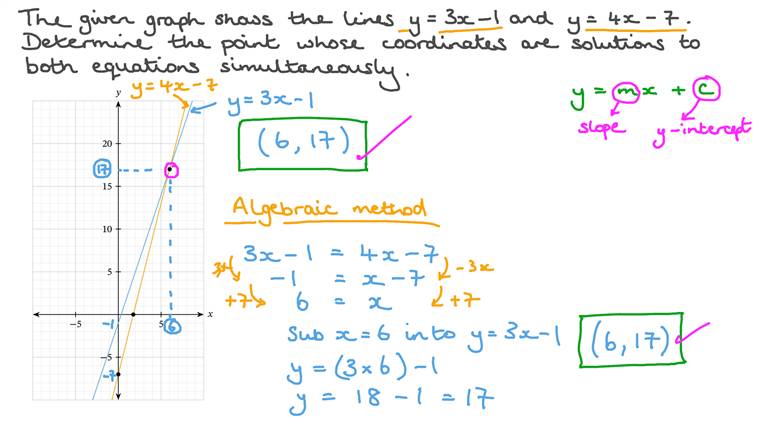 The given graph shows the lines y = 3x – 1 and y = 4x – 7.
Determine the point whose coordinates are solutions to
both equations simultaneously.
y = 4x – 7
y = 3x – 1
y = mx + c
slope
y-intercept
(6, 17)
y
20
17
15
10
5
x
−5
5
6
−1
−5
−7
Algebraic method
3x – 1 = 4x – 7
–3x
–1 = x – 7
+7
6 = x
+7
Sub x = 6 into y = 3x – 1
(6, 17)
y = (3 × 6) – 1
y = 18 – 1 = 17